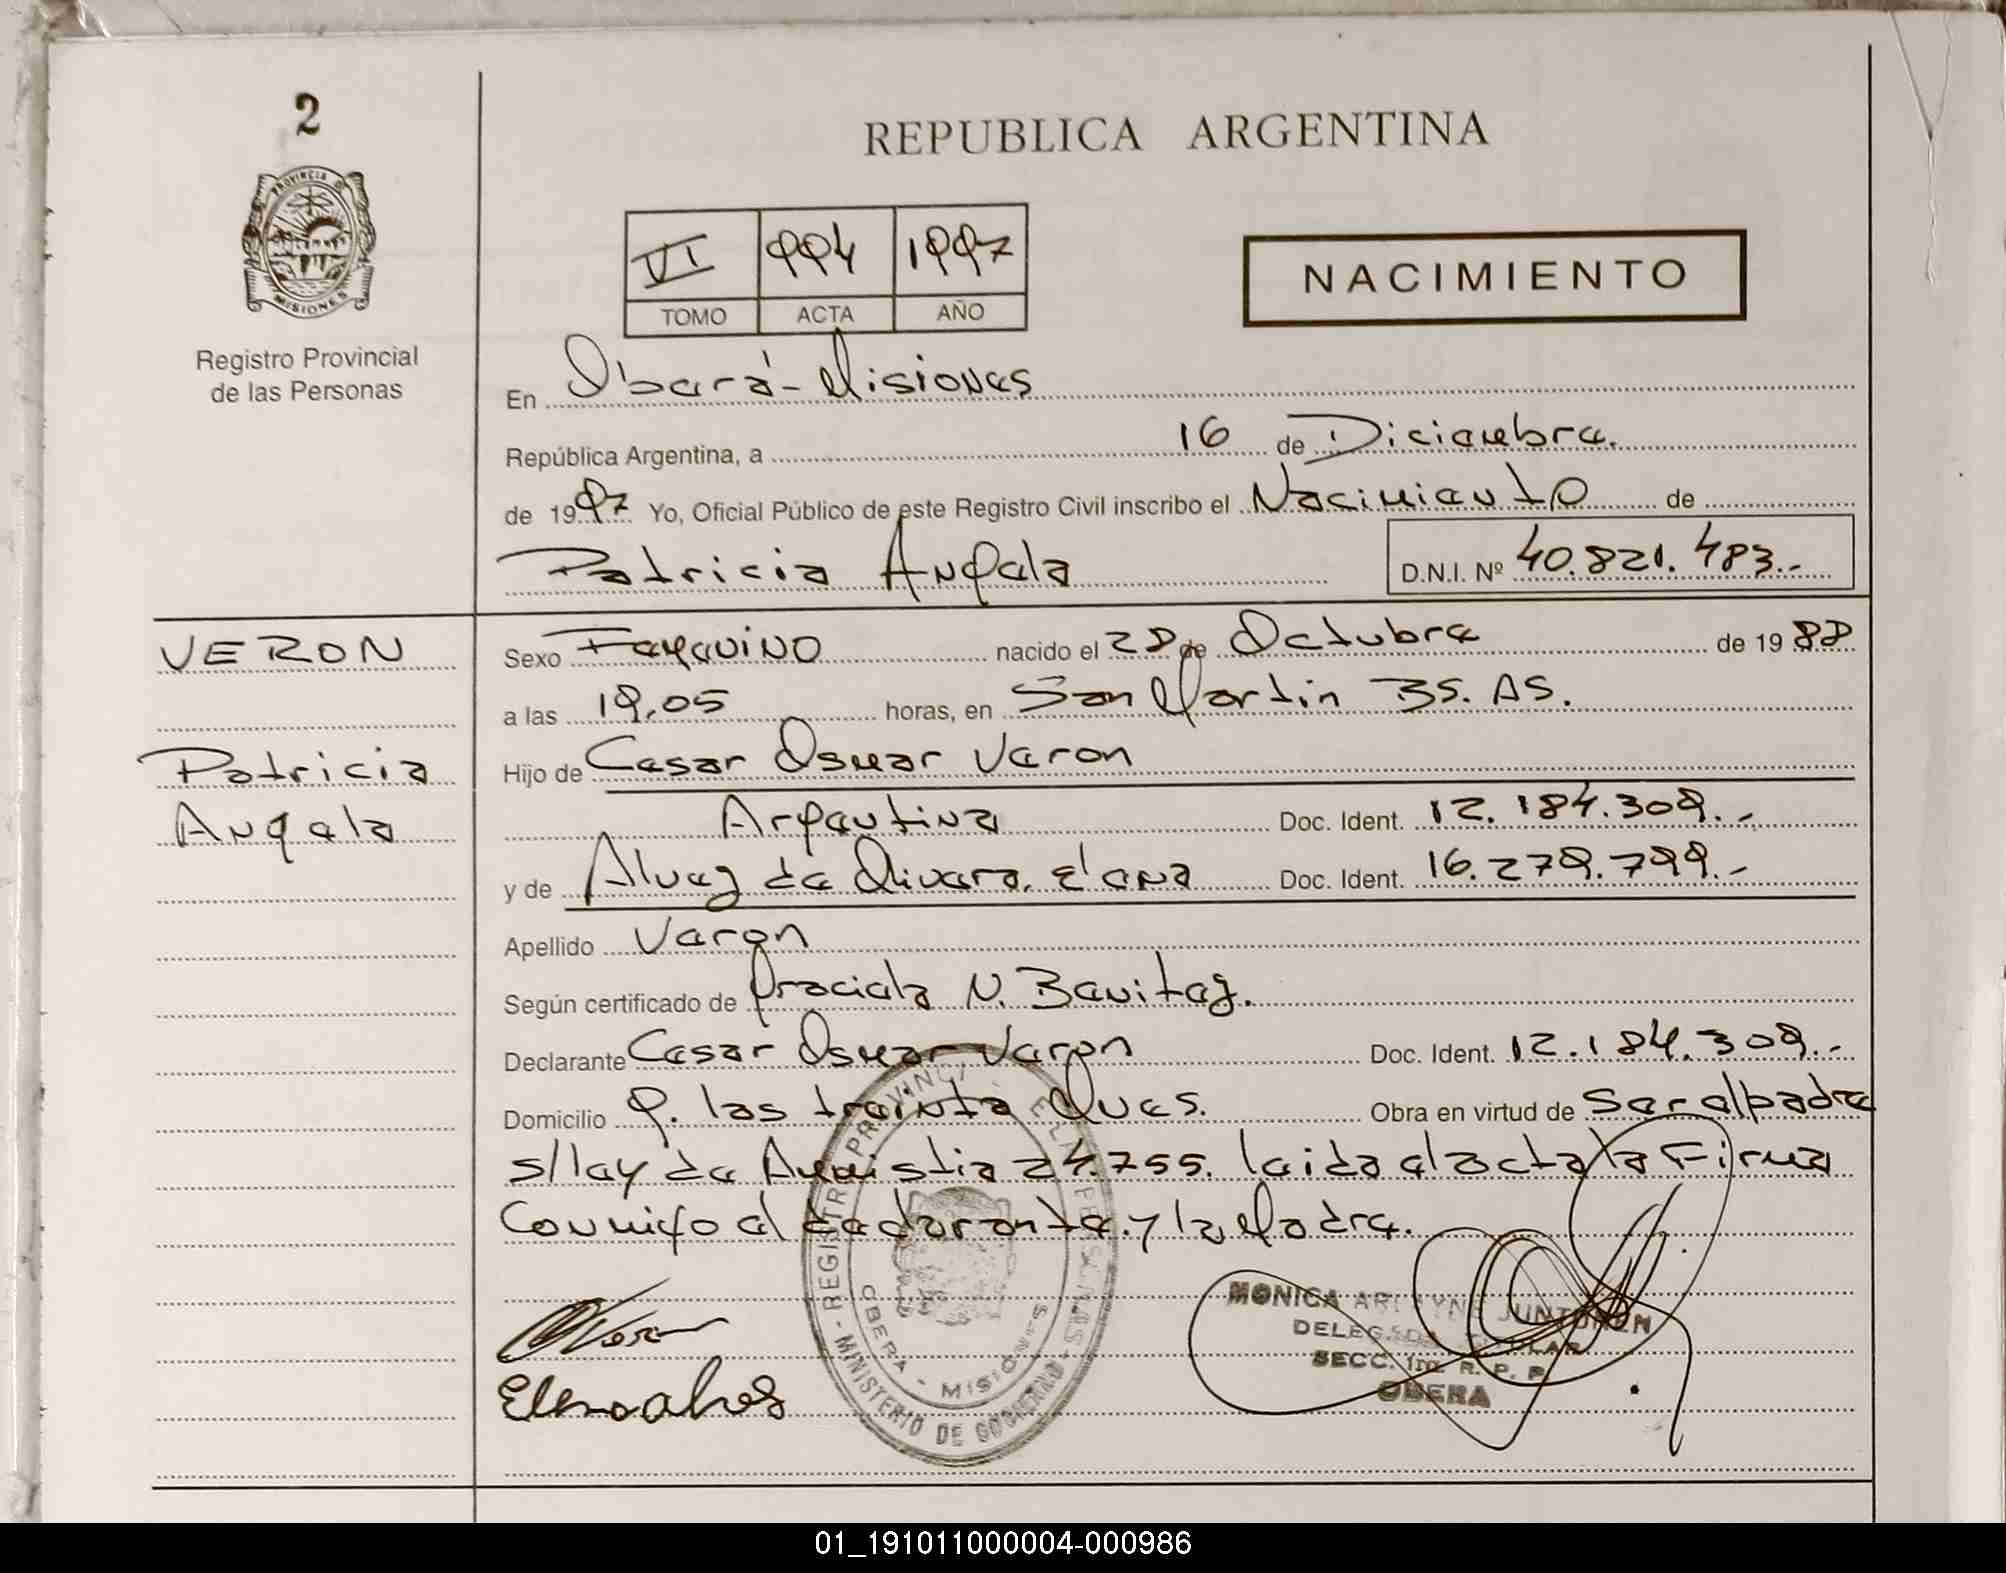 2
PROVINCIA DE
MISIONES
Registro Provincial
de las Personas
REPUBLICA ARGENTINA
VI 994 1997
TOMO ACTA AÑO
NACIMIENTO
En Oberá - Misiones
República Argentina, a 16 de Diciembre.
de 1997 Yo, Oficial Público de este Registro Civil inscribo el Nacimiento de
Patricia Angela D.N.I. Nº 40.821.483.-
VERON
Patricia
Angela
Sexo Femenino nacido el 28 de Octubre de 1988
a las 19,05 horas, en San Martin BS. AS.
Hijo de Cesar Osmar Veron
Argentina Doc. Ident. 12.184.309.-
y de Alvez de Olivera, Elena Doc. Ident. 16.279.799.-
Apellido Veron
Según certificado de Graciela N. Benitez.
Declarante Cesar Osmar Veron Doc. Ident. 12.184.309.-
Domicilio G. las treinta Oves. Obra en virtud de Ser el padre
s/ley de Amnistia 24.755. leida el acta la Firma
Conmigo el declarante y la Madre.
REGISTRO PROVINCI DE LAS PERSONAS - MINISTERIO DE GOBIERNO -
OBERA - MISIONES
MONICA JUNTUNEN
DELEGADA TITULAR
SECC. 1ra. R. P. P.
OBERA
01_191011000004-000986